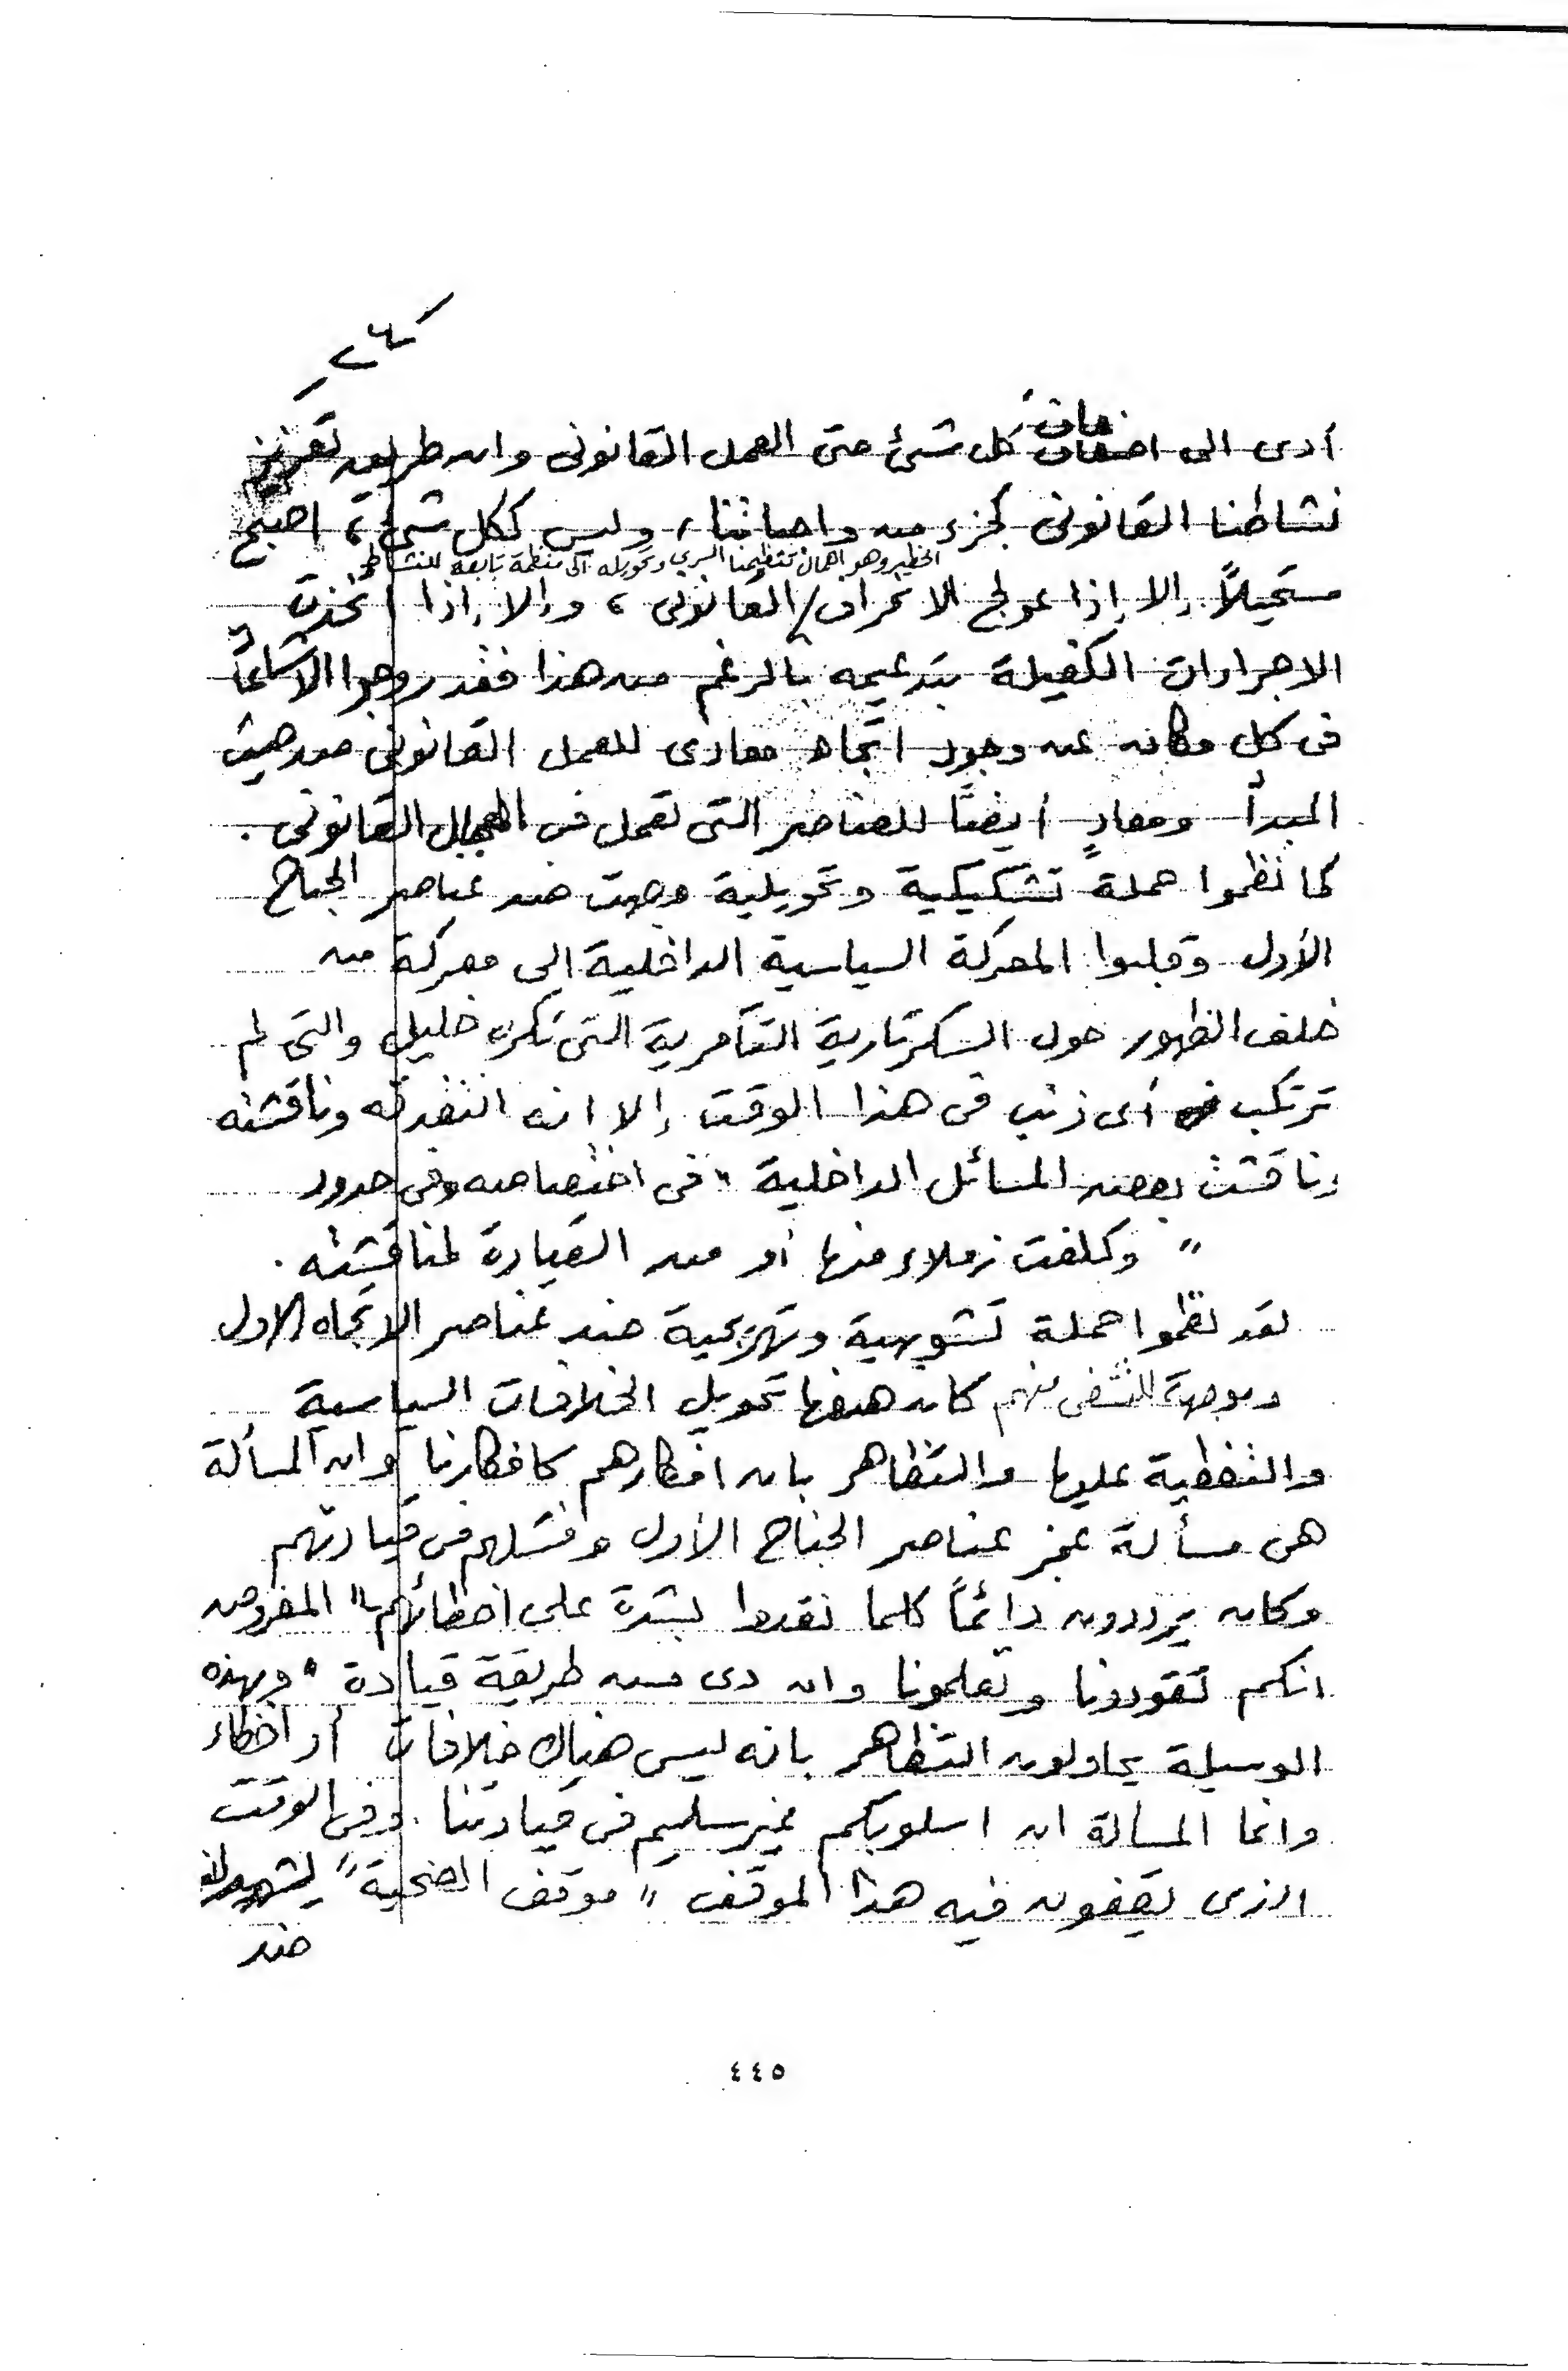 ـ ٢٤ ـ
أدى الى اضعاف كل شئ حتى العمل القانونى وان طريق تعزيز
نشاطنا القانونى كجزء من واجباتنا، وليس ككل شئ، اصبح
الخطير وهو اهمال تنظيمنا السري وتحويله الى منظمة تابعة للنشاط
مستحيلاً إلا إذا عولج الانحراف / القانونى، وإلا إذا اتخذت
الاجراءات الكفيلة بتدعيمه بالرغم من هذا فقد روجوا الاشاعات
فى كل مكان عن وجود اتجاه معادى للعمل القانونى من حيث
المبدأ ومعادٍ أيضاً للعناصر التى تعمل فى المجال القانونى.
كما نظموا حملة تشكيكية وتحويلية وجهت ضد عناصر الجناح
الأول وقلبوا المعركة السياسية الداخلية الى معركة من
خلف الظهور حول السكرتارية التآمرية التى تكره خليل والتى لم
ترتكب أى ذنب فى هذا الوقت إلا انه انتقدته وناقشته
وناقشت بعض المسائل الداخلية " فى اختصاصه وفى حدود
" وكلفت زملاء منها أو من القيادة لمناقشته.
لقد نظموا حملة تشويهية وتهريجية ضد عناصر الاتجاه الاول
وموجهة للتشفى منهم كان هدفها تحويل الخلافات السياسية
والتغطية عليها والتظاهر بان افكارهم كافكارنا وان المسألة
هى مسألة عجز عناصر الجناح الأول وفشلهم فى قيادتهم
وكان يرددون دائماً كلما نقدوا بشدة على اخطائهم " المفروض
انكم تقودونا وتعلمونا وان دى مش طريقة قيادة " وبهذه
الوسيلة يحاولون التظاهر بانه ليس هناك خلافات أو اخطاء
وانما المسألة ان اسلوبكم غير سليم فى قيادتنا. وفى الوقت
الذى يقفون فيه هذا الموقف " موقف الضحية "
ضد
٤٤٥